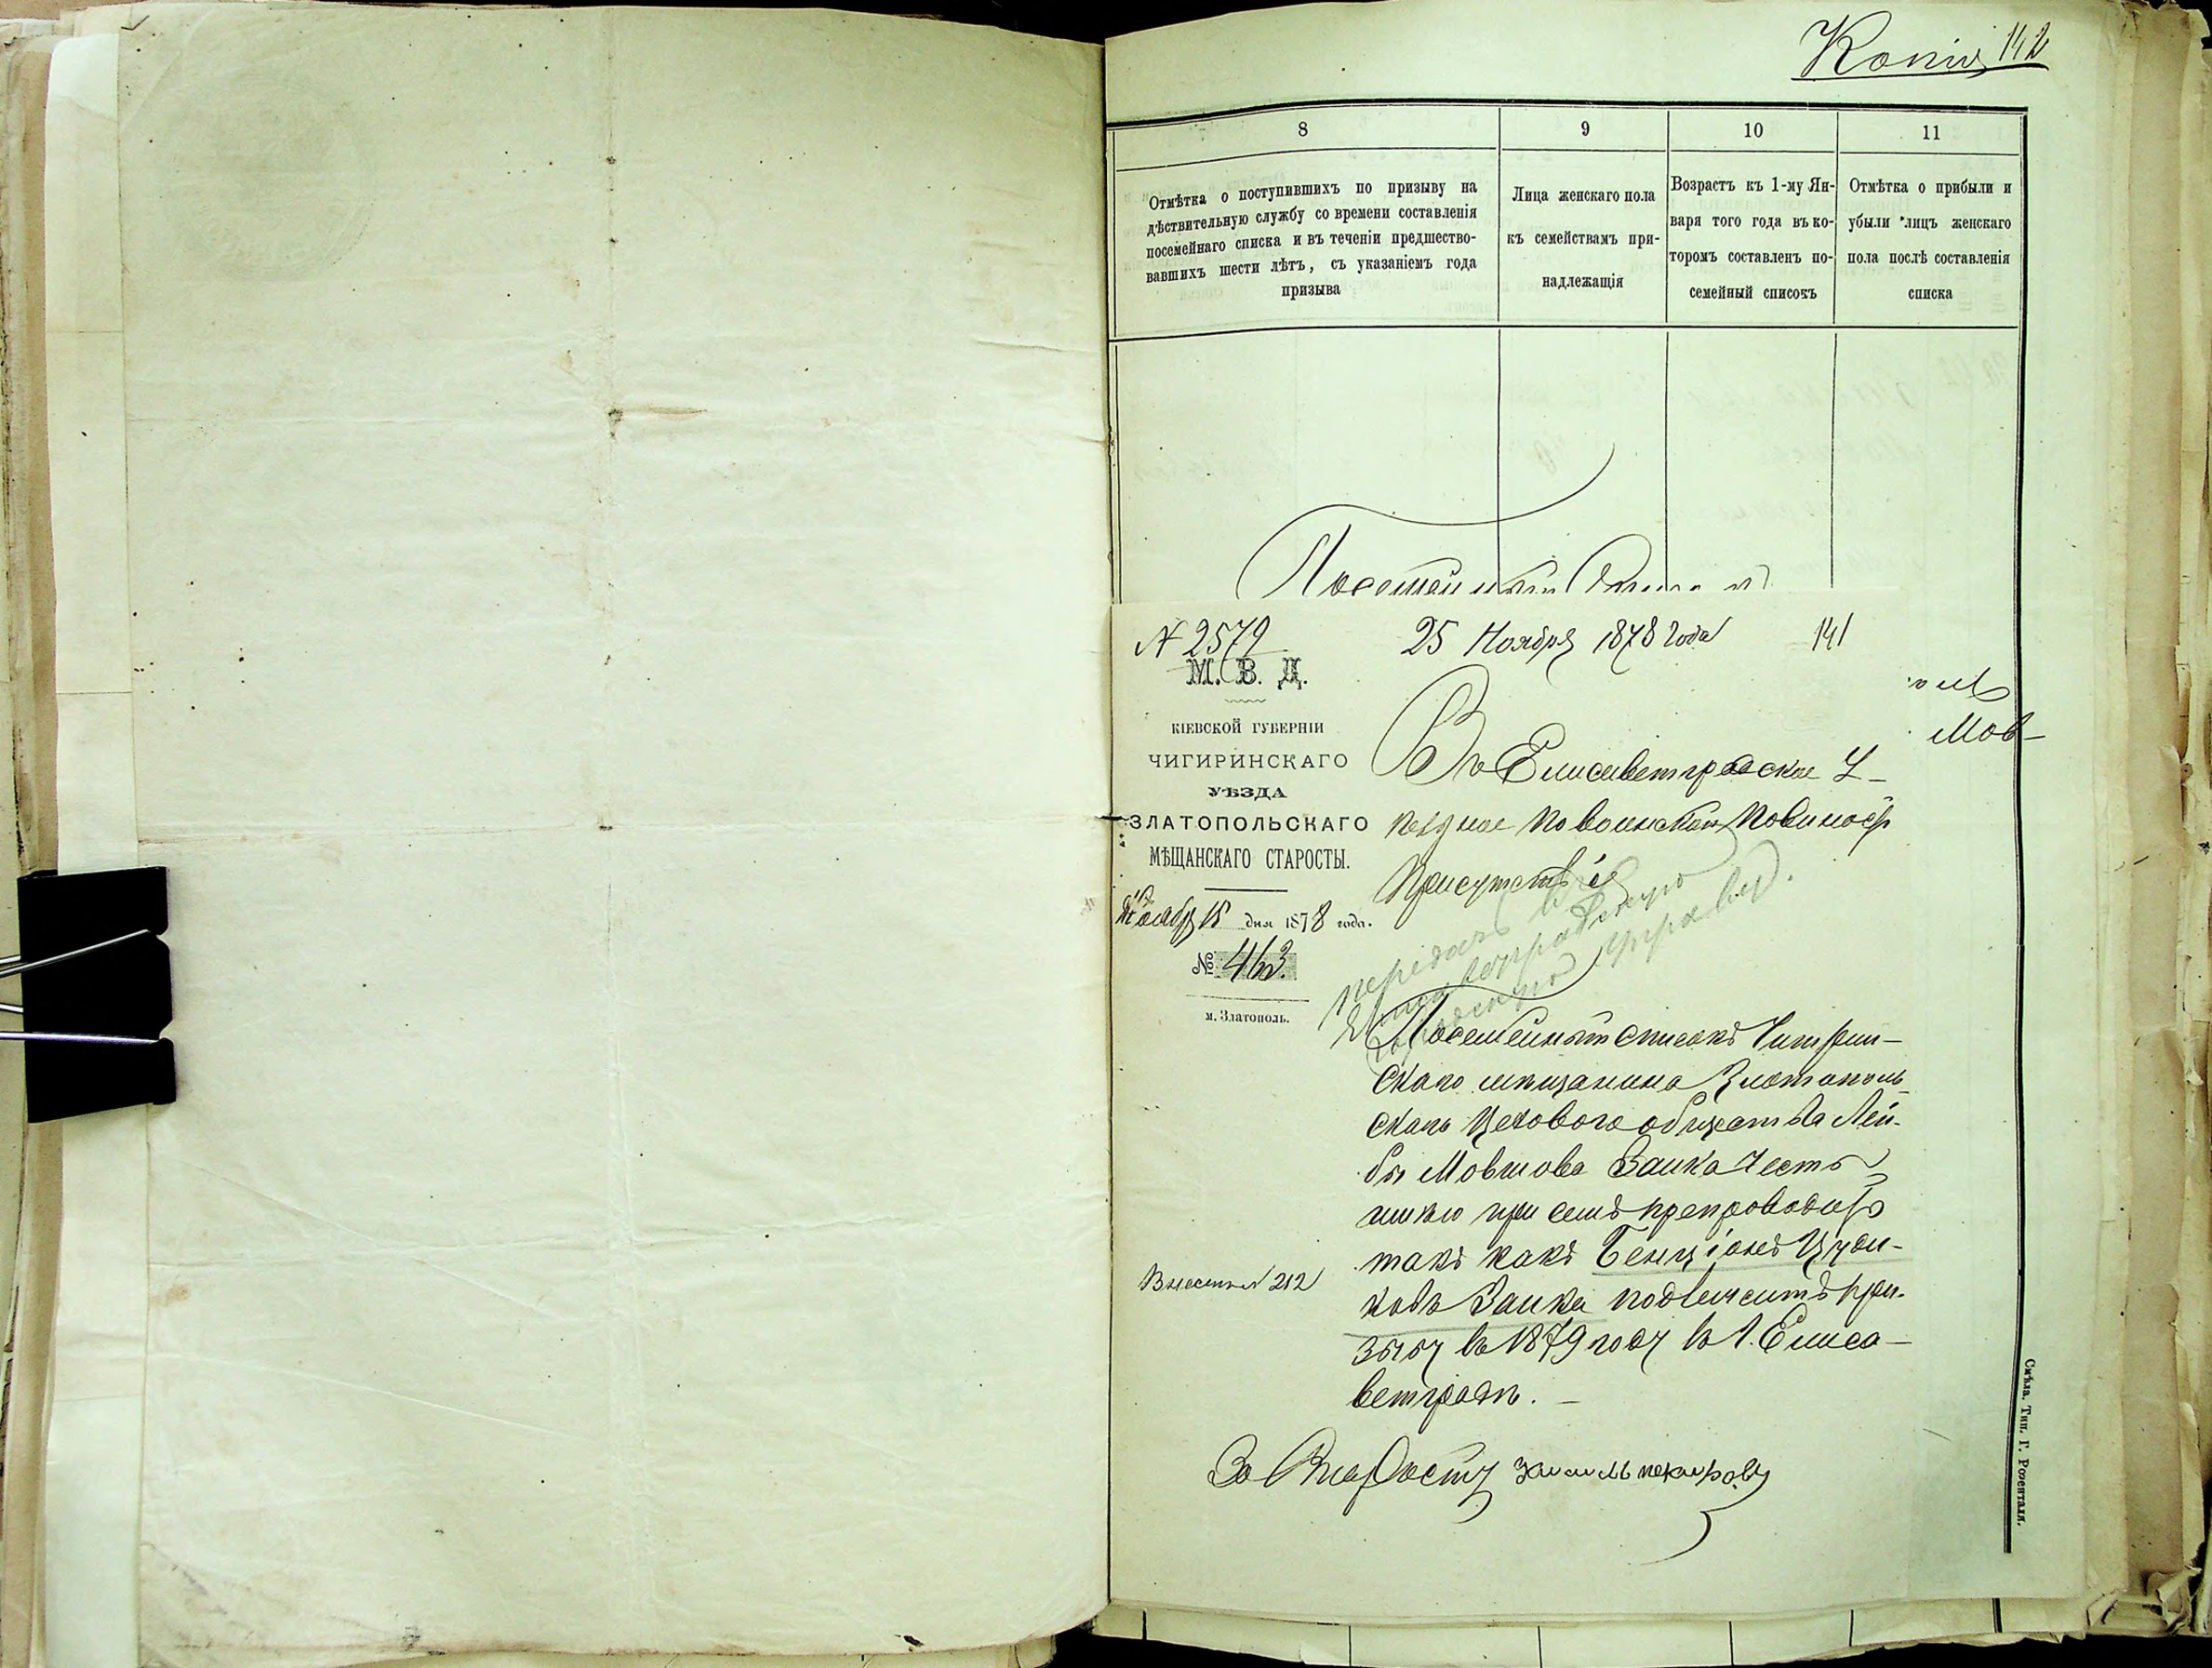 Копія 142
8 9 10 11
Отмѣтка о поступившихъ по призыву на
дѣствительную службу со времени составленія
посемейнаго списка и въ теченіи предшество-
вавшихъ шести лѣтъ, съ указаніемъ года
призыва
Лица женскаго пола
къ семействамъ при-
надлежащія
Возрастъ къ 1-му Ян-
варя того года въ ко-
торомъ составленъ по-
семейный списокъ
Отмѣтка о прибыли и
убыли лицъ женскаго
пола послѣ составленія
списка
Посемейный Списокъ
Мов-
N 2579
25 Ноября 1878 года
141
М. В. Д.
КІЕВСКОЙ ГУБЕРНІИ
ЧИГИРИНСКАГО
УѢЗДА
ЗЛАТОПОЛЬСКАГО
МѢЩАНСКАГО СТАРОСТЫ.
Ноября 15 дня 1878 года.
№ 463.
м. Златополь.
Въ Елисаветградское У-
ѣздное по воинской повинос
Присутствіе
передать
Посемейный списокъ Чигирин-
скаго мѣщанина Златополь-
скаго Цехового общества Лей-
бы Мовшова Заика честь
имѣю при семъ препроводить
такъ какъ Бенціонъ Цуди-
ковъ Заика подлежитъ при-
зыву въ 1879 году въ г. Елиса-
ветградѣ. —
212
За Старосту
Смѣла. Тип. Г. Розенталя.